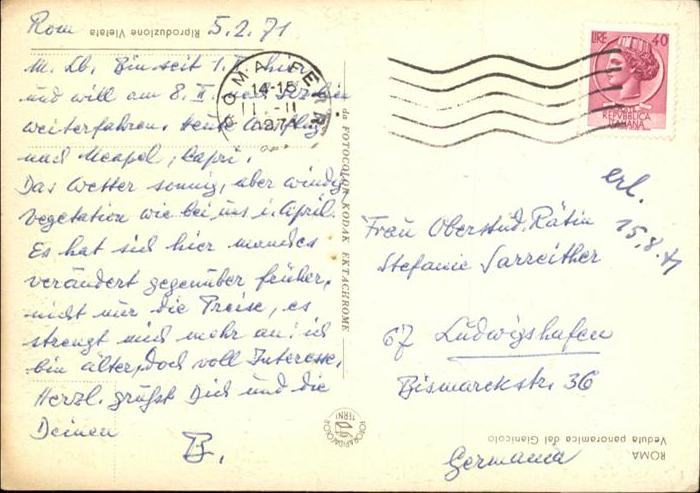 Rom 5.2.71
Riproduzione Vietata
M. Lb. Bin seit 1. II. hier
und will am 8. II. nach
weiterfahren. Heute Ausflug
nach Neapel, Capri.
Das Wetter sonnig, aber windig
Vegetation wie bei uns i. April.
Es hat sich hier manches
verändert gegenüber früher,
nicht nur die Preise, es
strengt mich mehr an: ich
bin älter, doch voll Interesse.
Herzl. grüßt Dich und die
Deinen
B.
da FOTOCOLOR KODAK EKTACHROME
ROMA FERR.
14-15
11.-II
1971
LIRE 40
POSTE
REPVBBLICA
ITALIANA
erl.
15.8.71
Frau Oberstud. Rätin
Stefanie Sarreither
67 Ludwigshafen
Bismarckstr. 36
Germania
ROMA
Veduta panoramica dal Gianicolo
FOTORAPIDACOLOR
TERNI